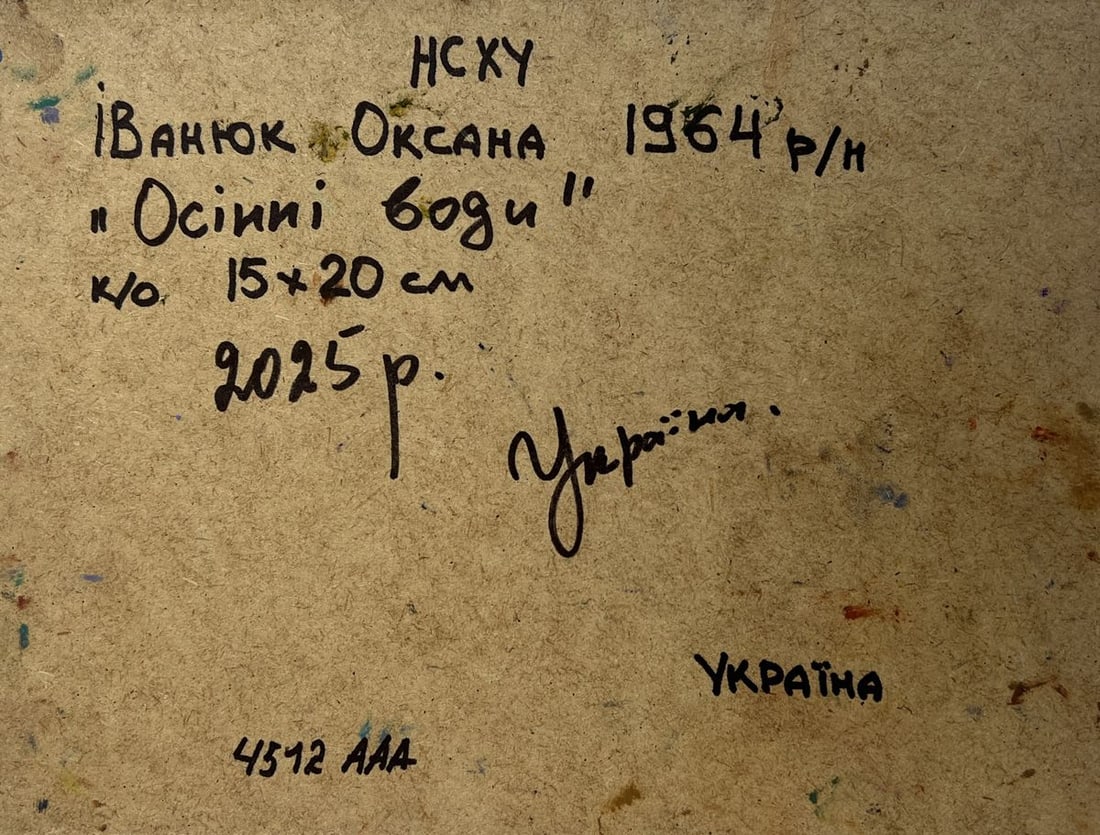 НСХУ
Іванюк Оксана 1964 р/н
„Осінні води"
к/о. 15х20 см
2025 р.
Україна.
УКРАЇНА
4512 ААА